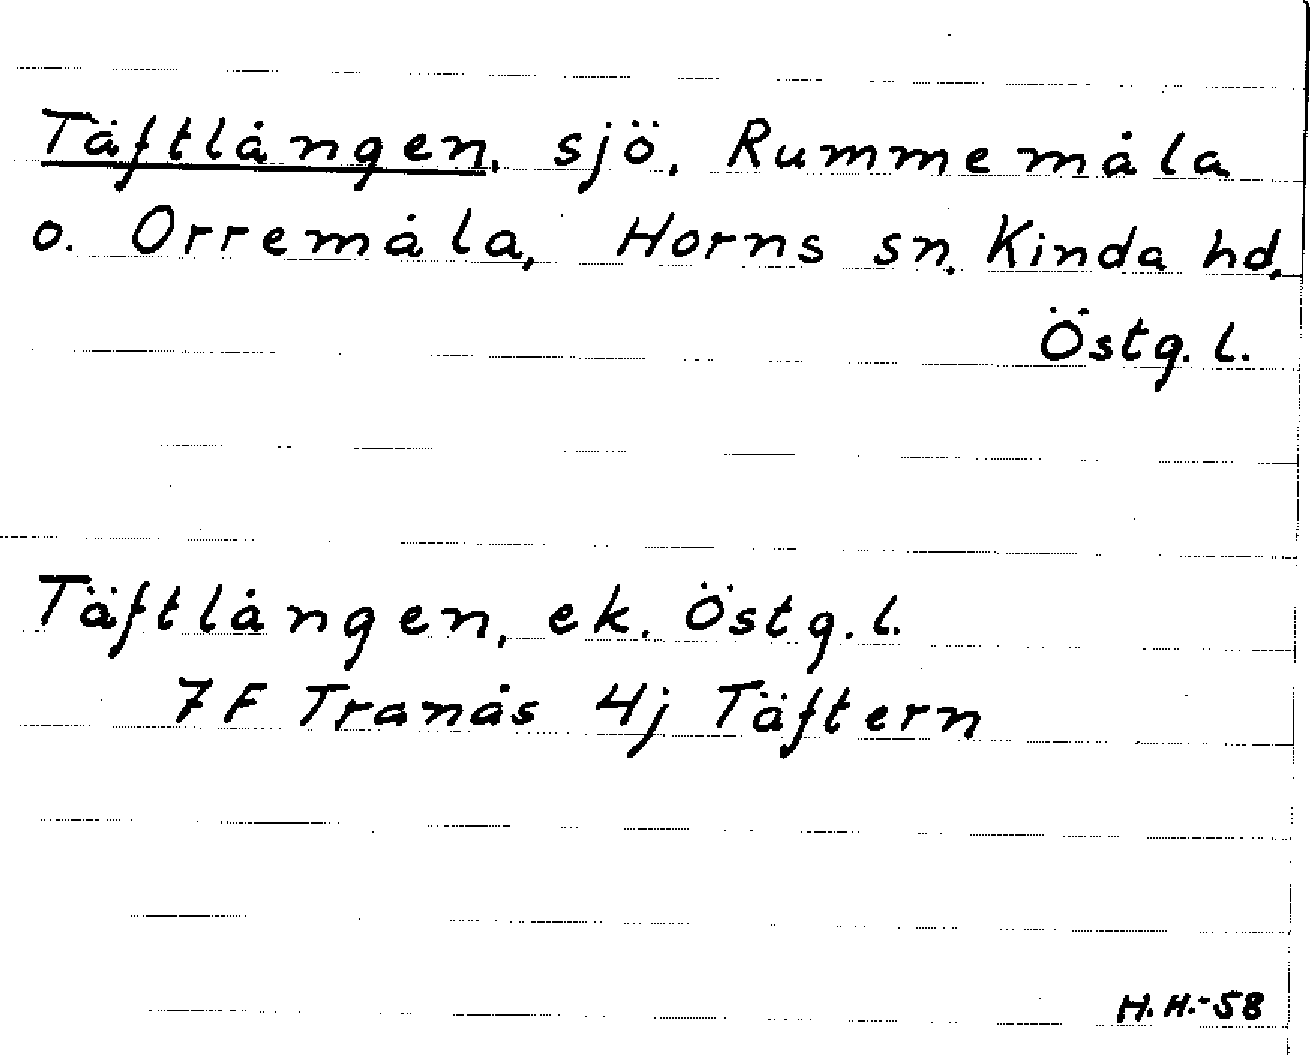 Täftlången, sjö. Rummemåla
o. Orremåla, Horns sn. Kinda hd.
Östg. l.
Täftlången, ek. Östg. l.
7 F Tranås 4j Täftern
H. H.-58